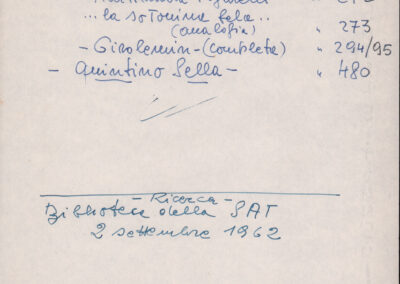 ...la sotonina bela..
(analofia) " 273
- Girolemin - (completa) " 294/95
- Quintino Sella - " 480
- Ricerca -
Biblioteca della SAT
2 settembre 1962